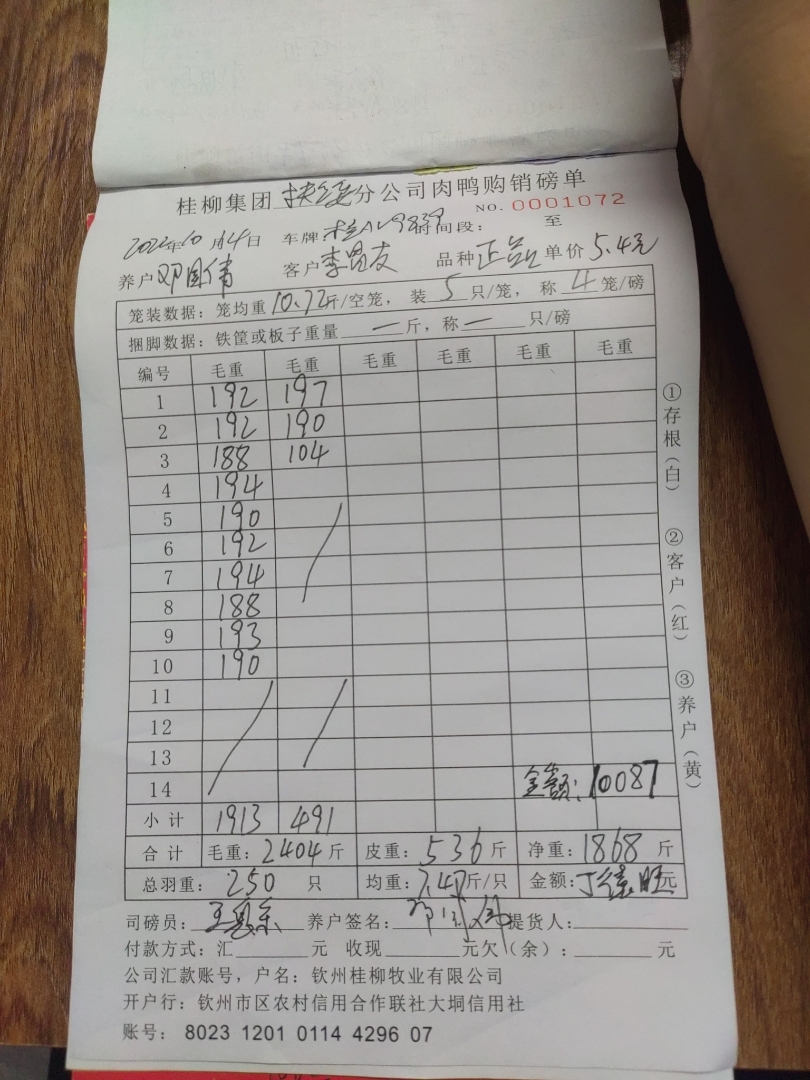 桂柳集团扶绥分公司肉鸭购销磅单
NO. 0001072
2022年10月14日 车牌: 时间段: 至
养户邓国伟 客户李昌友 品种正品 单价5.4元
笼装数据:笼均重10.72斤/空笼,装5只/笼,称4笼/磅
捆脚数据:铁筐或板子重量一斤,称一只/磅
编号 毛重 毛重 毛重 毛重 毛重 毛重
1 192 197
2 192 190
3 188 104
4 194
5 190
6 192
7 194
8 188
9 193
10 190
11
12
13
14 金额:10087
小计 1913 491
合计 毛重:2404斤 皮重:536斤 净重:1868斤
总羽重:250只 均重:7.47斤/只 金额: 元
司磅员: 养户签名:邓国伟 提货人:
付款方式:汇 元 收现 元欠(余): 元
公司汇款账号,户名:钦州桂柳牧业有限公司
开户行:钦州市区农村信用合作联社大垌信用社
账号: 8023 1201 0114 4296 07
①存根(白) ②客户(红) ③养户(黄)